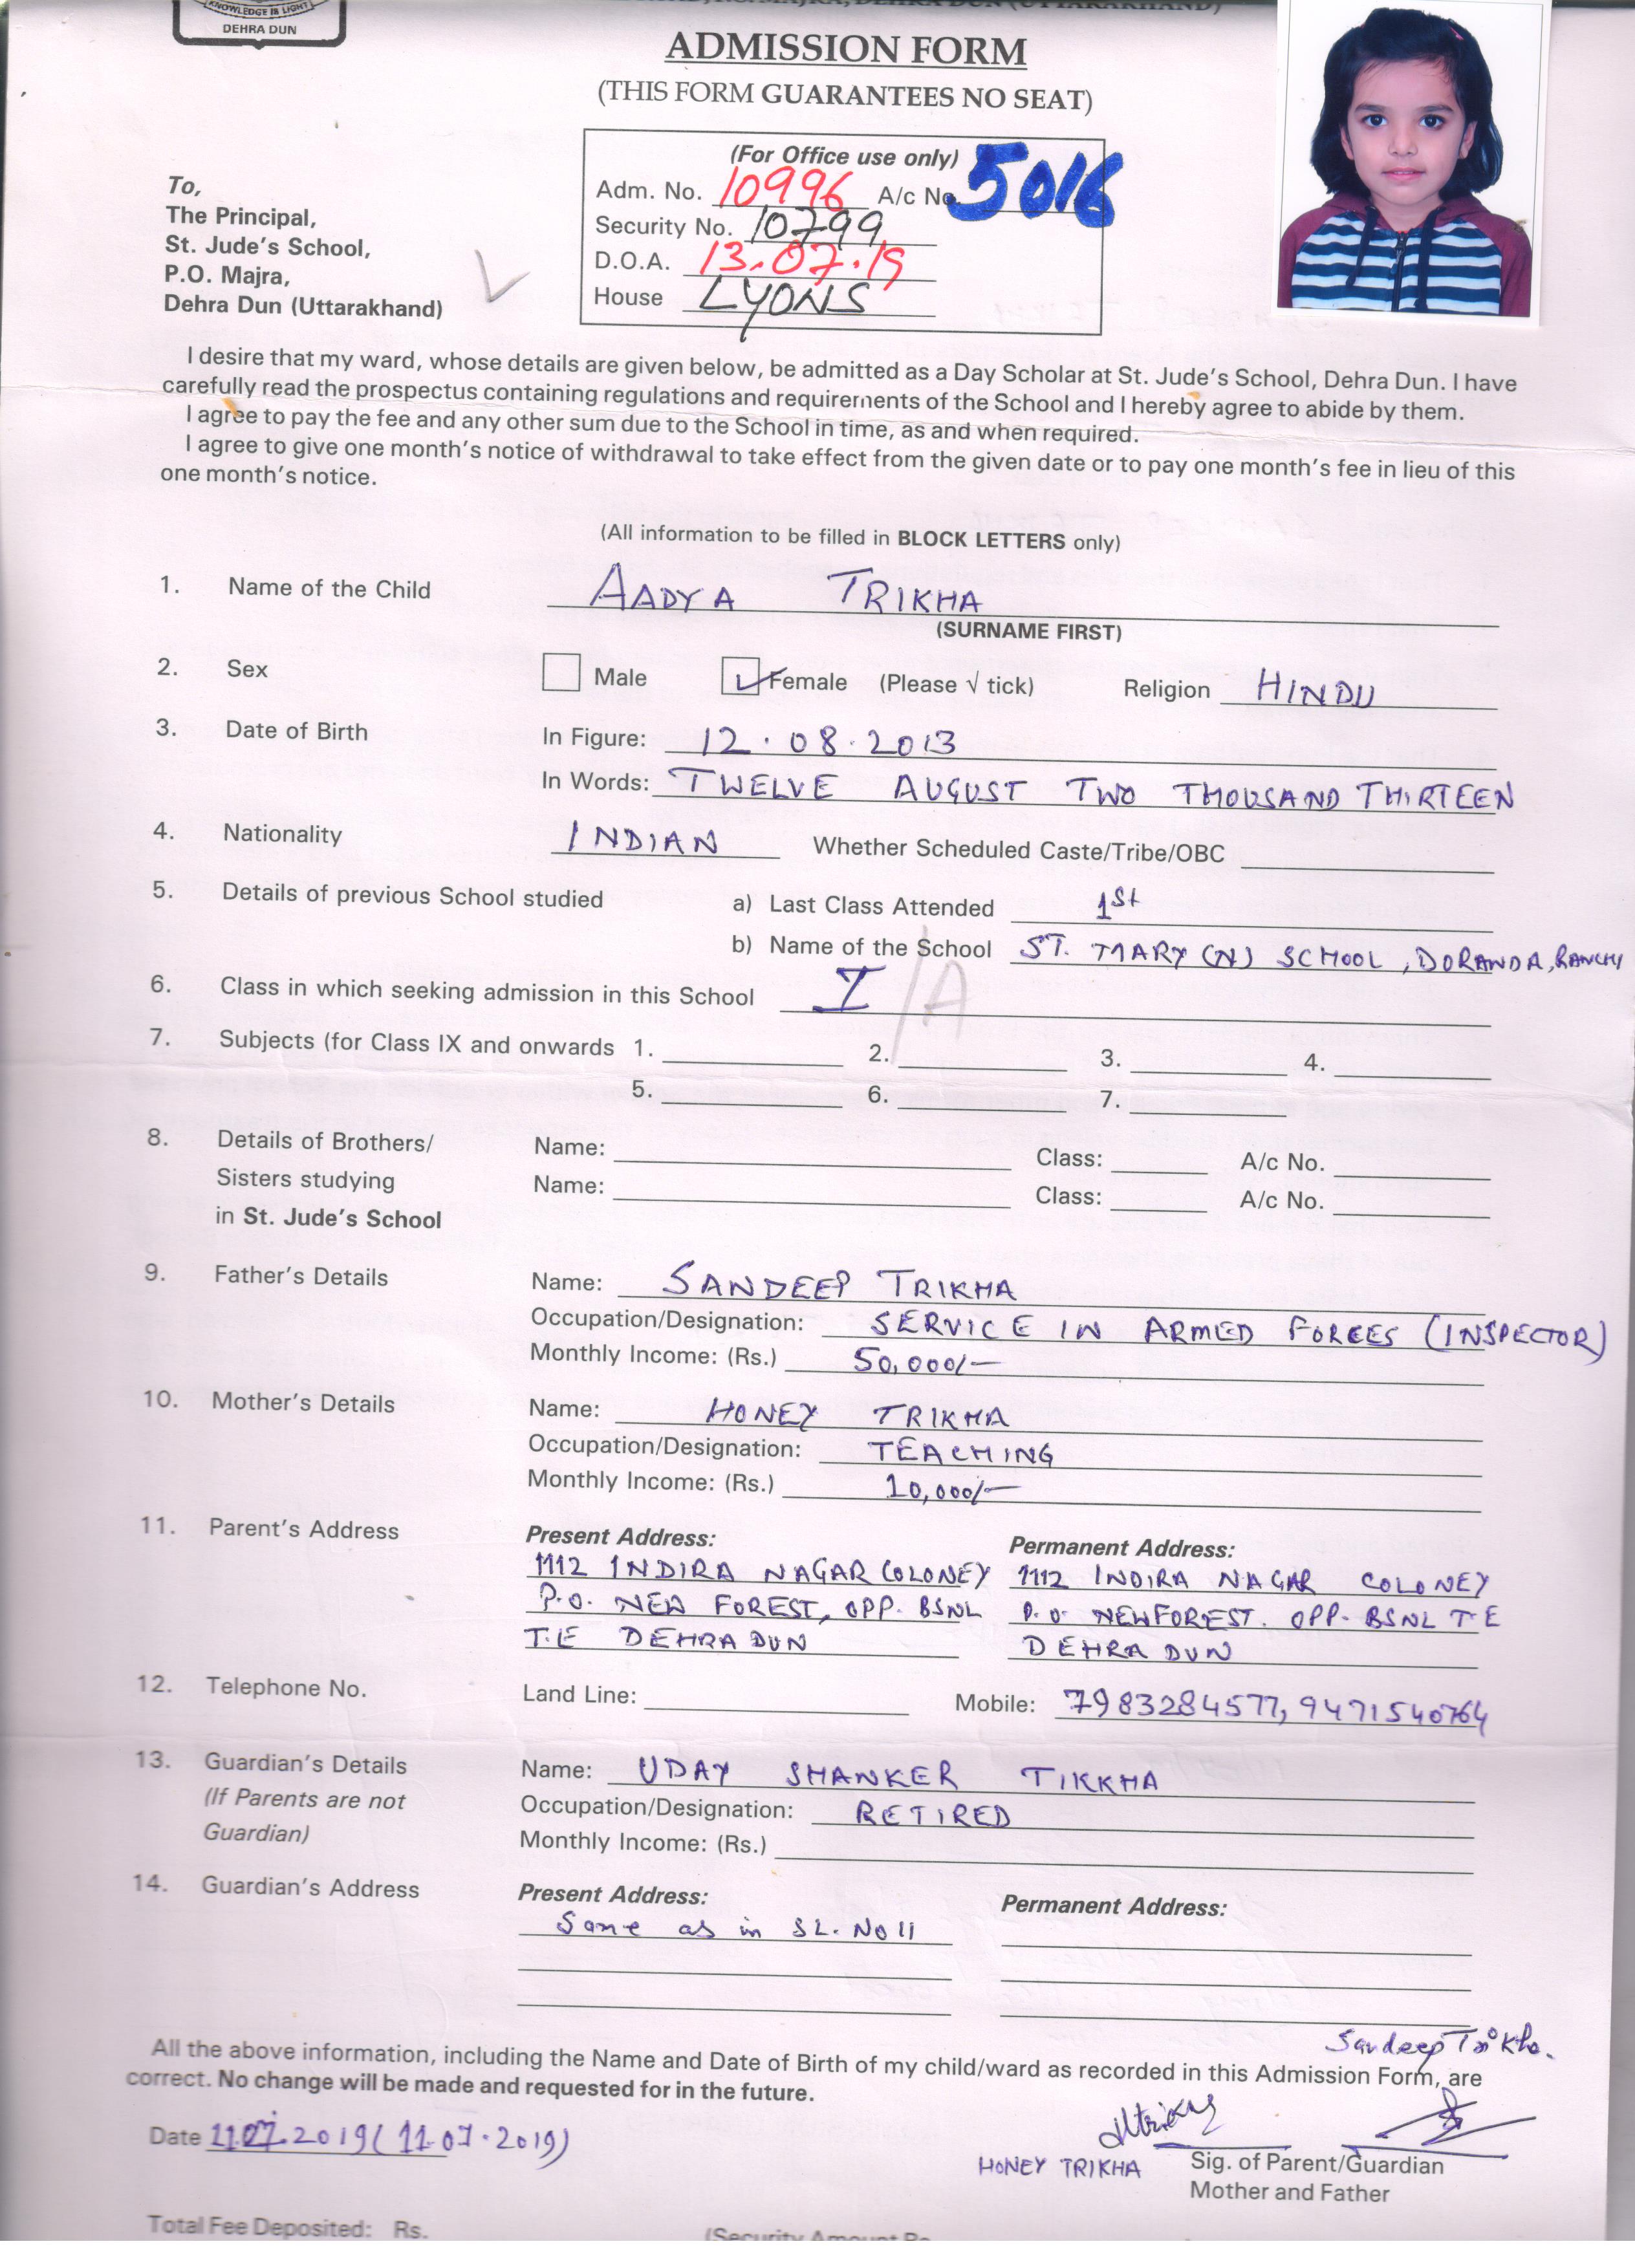 KNOWLEDGE IS LIGHT
DEHRA DUN
ADMISSION FORM
(THIS FORM GUARANTEES NO SEAT)
(For Office use only)
Adm. No. 10996 A/c No. 5016
Security No. 10799
D.O.A. 13.07.19
House LYONS
To,
The Principal,
St. Jude's School,
P.O. Majra,
Dehra Dun (Uttarakhand)
I desire that my ward, whose details are given below, be admitted as a Day Scholar at St. Jude's School, Dehra Dun. I have
carefully read the prospectus containing regulations and requirements of the School and I hereby agree to abide by them.
I agree to pay the fee and any other sum due to the School in time, as and when required.
I agree to give one month's notice of withdrawal to take effect from the given date or to pay one month's fee in lieu of this
one month's notice.
(All information to be filled in BLOCK LETTERS only)
1. Name of the Child AADYA TRIKHA
(SURNAME FIRST)
2. Sex Male Female (Please √ tick) Religion HINDU
3. Date of Birth In Figure: 12.08.2013
In Words: TWELVE AUGUST TWO THOUSAND THIRTEEN
4. Nationality INDIAN Whether Scheduled Caste/Tribe/OBC
5. Details of previous School studied a) Last Class Attended 1st
b) Name of the School ST. MARY (N) SCHOOL, DORANDA, RANCHI
6. Class in which seeking admission in this School I /A
7. Subjects (for Class IX and onwards 1. 2. 3. 4.
5. 6. 7.
8. Details of Brothers/ Name: Class: A/c No.
Sisters studying Name: Class: A/c No.
in St. Jude's School
9. Father's Details Name: SANDEEP TRIKHA
Occupation/Designation: SERVICE IN ARMED FORCES (INSPECTOR)
Monthly Income: (Rs.) 50,000/-
10. Mother's Details Name: HONEY TRIKHA
Occupation/Designation: TEACHING
Monthly Income: (Rs.) 10,000/-
11. Parent's Address Present Address: Permanent Address:
1112 INDIRA NAGAR COLONEY 1112 INDIRA NAGAR COLONEY
P.O. NEW FOREST, OPP. BSNL P.O. NEW FOREST. OPP. BSNL T.E
T.E DEHRA DUN DEHRA DUN
12. Telephone No. Land Line: Mobile: 7983284577, 9471540764
13. Guardian's Details Name: UDAY SHANKER TIKKHA
(If Parents are not Occupation/Designation: RETIRED
Guardian) Monthly Income: (Rs.)
14. Guardian's Address Present Address: Permanent Address:
Same as in SL. No 11
Sandeep Trikha.
All the above information, including the Name and Date of Birth of my child/ward as recorded in this Admission Form, are
correct. No change will be made and requested for in the future.
Date 11.07.2019 (11.07.2019)
HONEY TRIKHA Sig. of Parent/Guardian
Mother and Father
Total Fee Deposited: Rs.